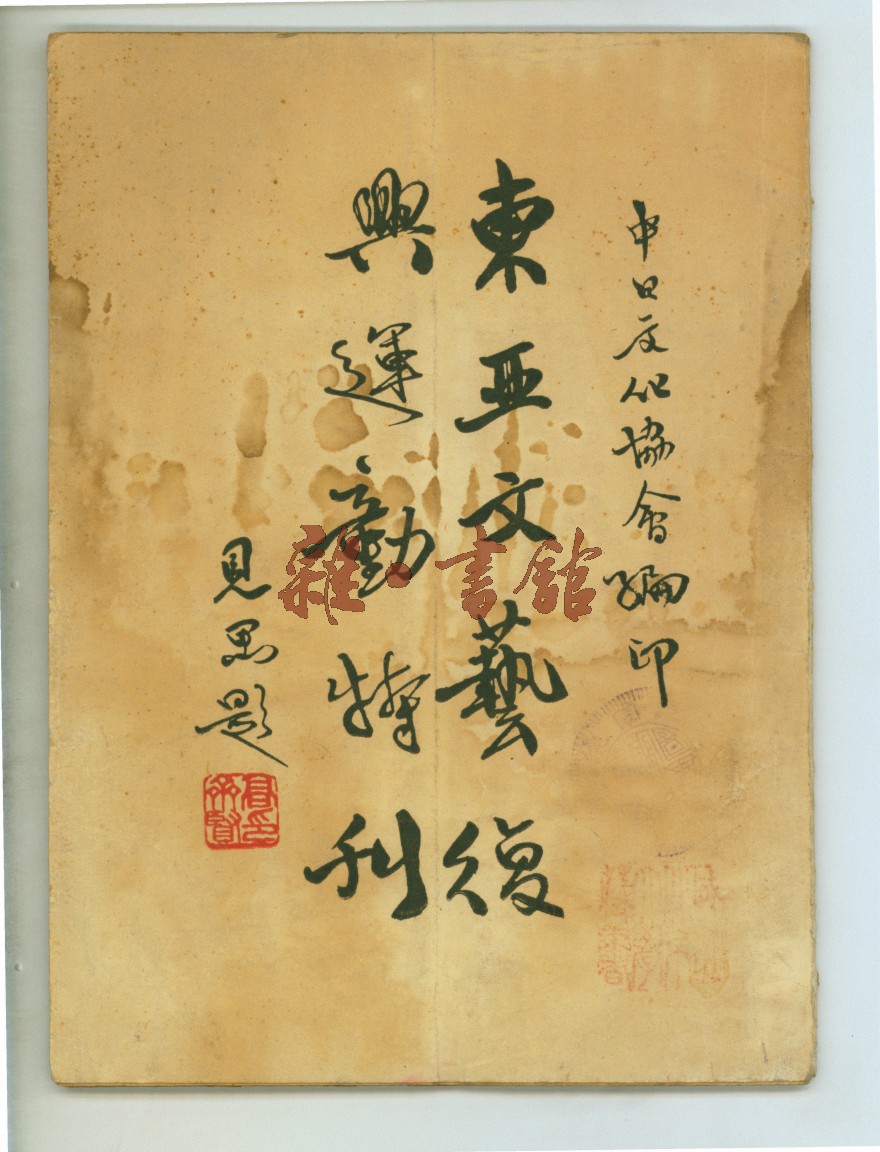 中日文化協會編印
東亞文藝復
興運動特刊
見思題
雜·書館